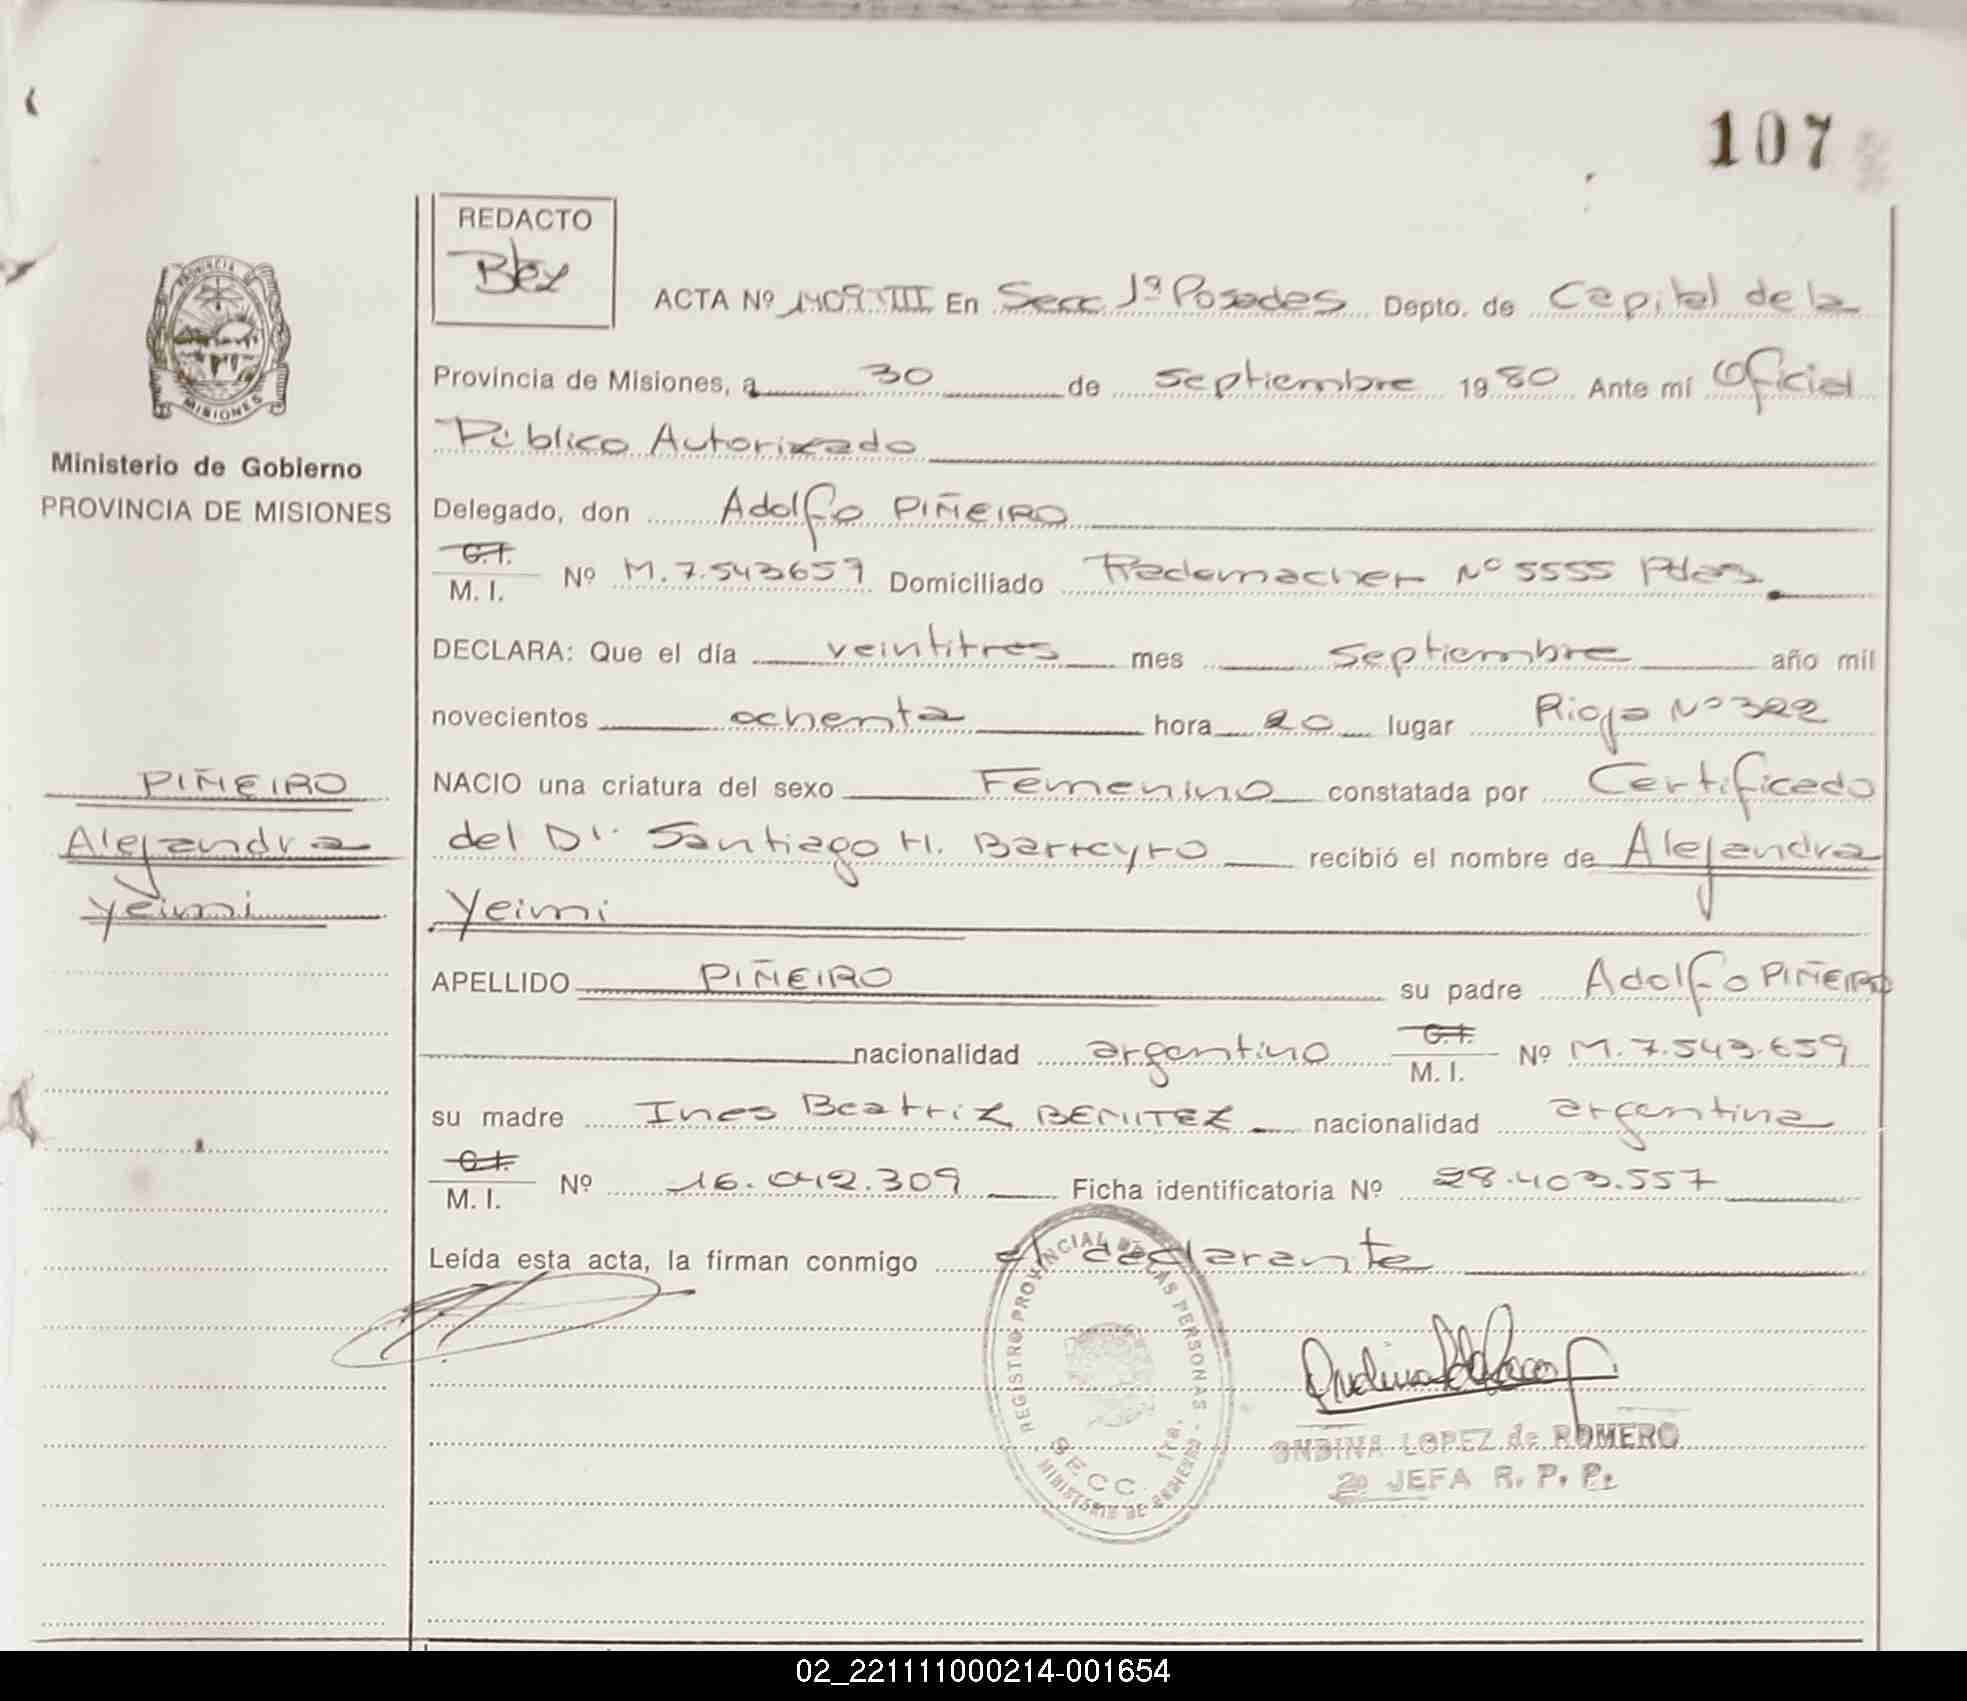 107
REDACTO
PROVINCIA DE
MISIONES
ACTA Nº 1409 VIII En Secc 1ª Posadas Depto. de Capital de la
Provincia de Misiones, a 30 de Septiembre 1980 Ante mí Oficial
Público Autorizado
Ministerio de Gobierno
PROVINCIA DE MISIONES
Delegado, don Adolfo PIÑEIRO
C.I.
M. I. Nº M.7.543659 Domiciliado Rademacher Nº 5555 Pdas
DECLARA: Que el día veintitres mes Septiembre año mil
novecientos ochenta hora 20 lugar Rioja Nº 322
PIÑEIRO
Alejandra
Yeimi
NACIO una criatura del sexo Femenino constatada por Certificado
del Dr. Santiago H. Barreyro recibió el nombre de Alejandra
Yeimi
APELLIDO PIÑEIRO su padre Adolfo PIÑEIRO
nacionalidad argentino C.I. M. I. Nº M.7.543.659
su madre Ines Beatriz BENITEZ nacionalidad argentina
C.I.
M. I. Nº 16.042.309 Ficha identificatoria Nº 28.403.557
Leída esta acta, la firman conmigo el declarante
REGISTRO PROVINCIAL DE LAS PERSONAS -
SECC. 1ra.
MINISTERIO DE GOBIERNO
ONDINA LOPEZ de ROMERO
2a JEFA R. P. P.
02_221111000214-001654